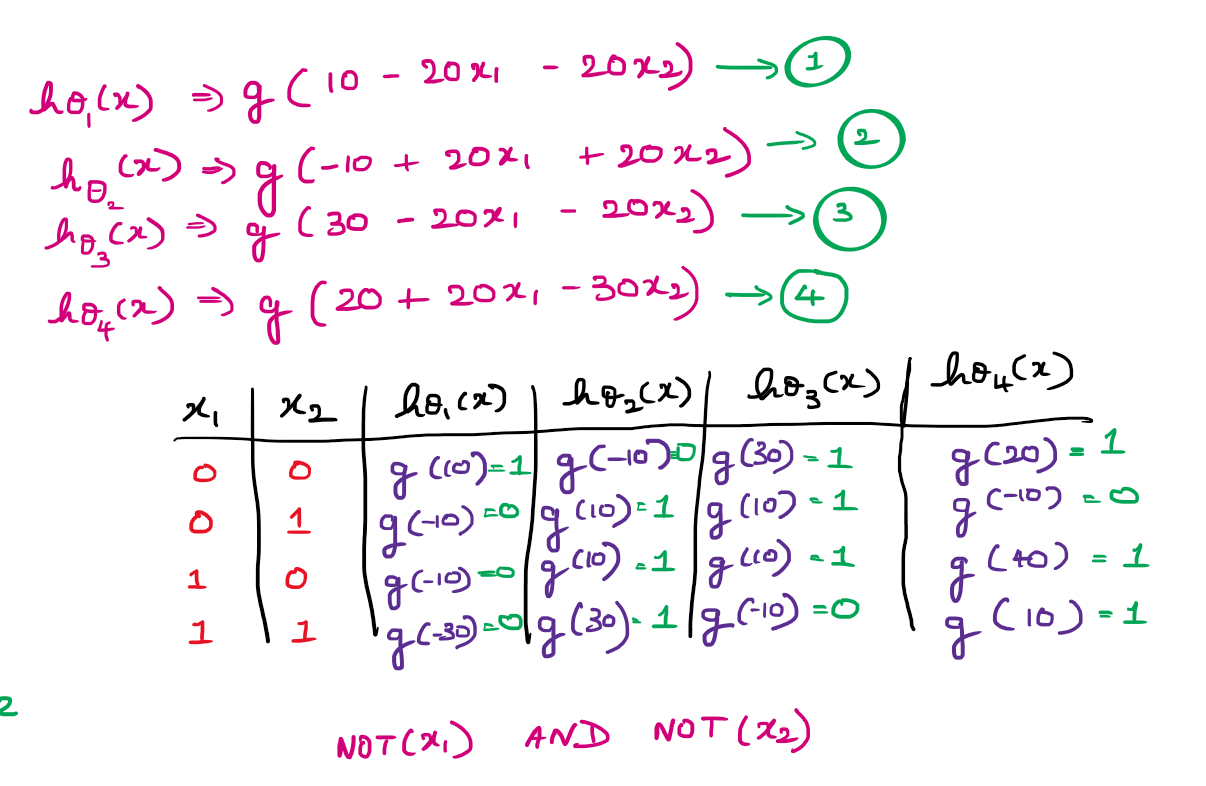 hθ₁(x) ⇒ g(10 - 20x₁ - 20x₂) → 1
hθ₂(x) ⇒ g(-10 + 20x₁ + 20x₂) → 2
hθ₃(x) ⇒ g(30 - 20x₁ - 20x₂) → 3
hθ₄(x) ⇒ g(20 + 20x₁ - 30x₂) → 4
x₁ | x₂ | hθ₁(x) | hθ₂(x) | hθ₃(x) | hθ₄(x)
0 0 g(10)=1 g(-10)=0 g(30)=1 g(20)=1
0 1 g(-10)=0 g(10)=1 g(10)=1 g(-10)=0
1 0 g(-10)=0 g(10)=1 g(10)=1 g(40)=1
1 1 g(-30)=0 g(30)=1 g(-10)=0 g(10)=1
2
NOT(x₁) AND NOT(x₂)